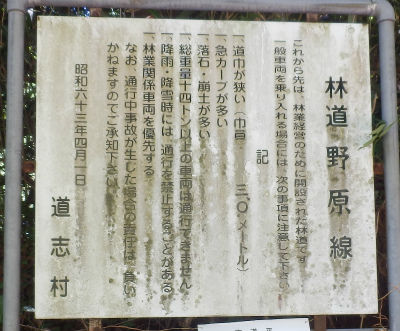 林道野原線
これから先は、林業経営のために開設された林道です
一般車両を乗り入れる場合には、次の事項に注意して下さい
記
一、道巾が狭い（巾員 三.〇メートル）
一、急カーブが多い
一、落石・崩土が多い
一、総重量十四トン以上の車両は通行できません
一、降雨・降雪時には、通行を禁止することがある
一、林業関係車両を優先する
なお、通行中事故が生じた場合の責任は、負い
かねますのでご承知下さい
昭和六十三年四月一日
道志村